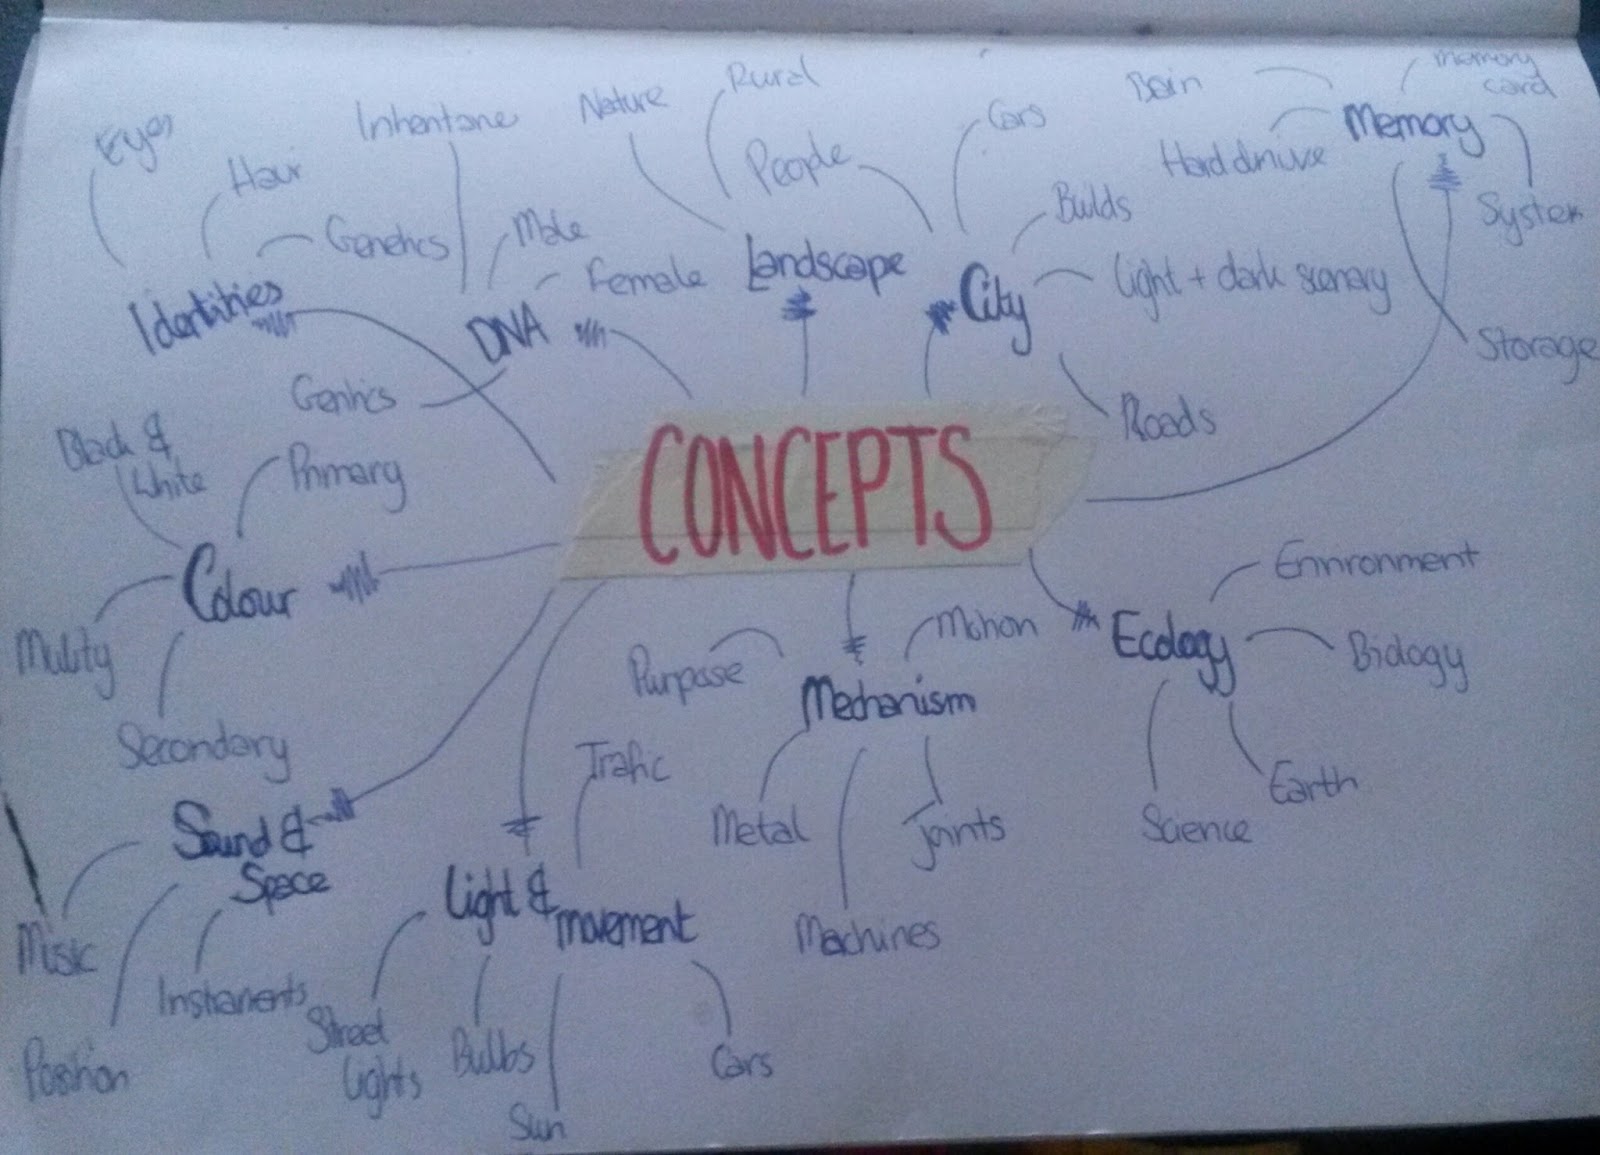 Rural
memory
card
Nature
Eyes
Cars
Memory
Hair
People
Hard drive
Builds
System
Genetics
Male
Landscape
Light + dark scenary
Female
City
Identities
DNA
Storage
Genetics
Roads
Black &
White
Primary
CONCEPTS
Environment
Colour
Motion
Ecology
Biology
Purpose
Mechanism
Secondary
Trafic
Earth
Metal
Joints
Science
Sound &
Space
Light &
movement
Machines
Music
Street
Lights
Bulbs
Cars
Position
Sun